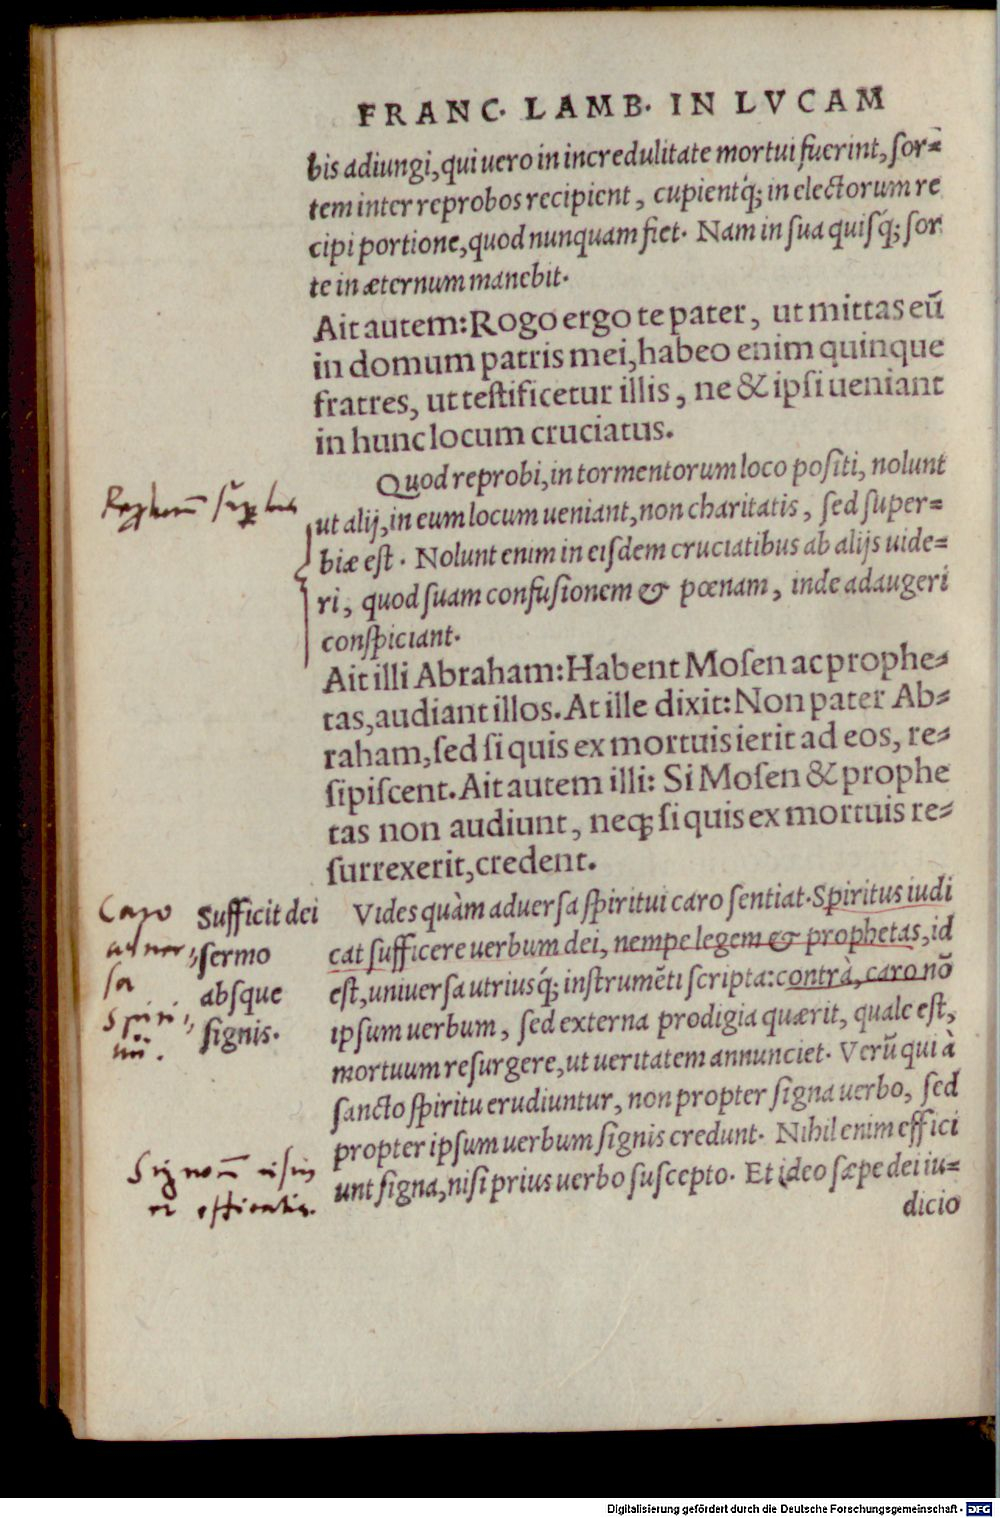 FRANC. LAMB. IN LVCAM
bis adiungi, qui uero in incredulitate mortui fuerint, ſor=
tem inter reprobos recipient, cupientq́; in electorum re
cipi portione, quod nunquam fiet. Nam in ſua quiſq́; ſor
te in æternum manebit.
Ait autem: Rogo ergo te pater, ut mittas eū
in domum patris mei, habeo enim quinque
fratres, ut teſtificetur illis, ne & ipſi ueniant
in hunc locum cruciatus.
Quod reprobi, in tormentorum loco poſiti, nolunt
ut alij, in eum locum ueniant, non charitatis, ſed ſuper=
biæ eſt. Nolunt enim in eiſdem cruciatibus ab alijs uide=
ri, quod ſuam confuſionem & pœnam, inde adaugeri
conſpiciant.
Ait illi Abraham: Habent Moſen ac prophe=
tas, audiant illos. At ille dixit: Non pater Ab=
raham, ſed ſi quis ex mortuis ierit ad eos, re=
ſipiſcent. Ait autem illi: Si Moſen & prophe
tas non audiunt, neq; ſi quis ex mortuis re=
ſurrexerit, credent.
Caro
aduer,
ſa
Spiri,
tui.
Sufficit dei
ſermo
abſque
ſignis.
Vides quàm aduerſa ſpiritui caro ſentiat. Spiritus iudi
cat ſufficere uerbum dei, nempe legem & prophetas, id
eſt, uniuerſa utriusq́; inſtrumēti ſcripta: contrà, caro nō
ipſum uerbum, ſed externa prodigia quærit, quale eſt,
mortuum reſurgere, ut ueritatem annunciet. Verū qui à
ſancto ſpiritu erudiuntur, non propter ſigna uerbo, ſed
propter ipſum uerbum ſignis credunt. Nihil enim effici
unt ſigna, niſi prius uerbo ſuſcepto. Et ideo ſæpe dei iu=
dicio
Digitalisierung gefördert durch die Deutsche Forschungsgemeinschaft - DFG